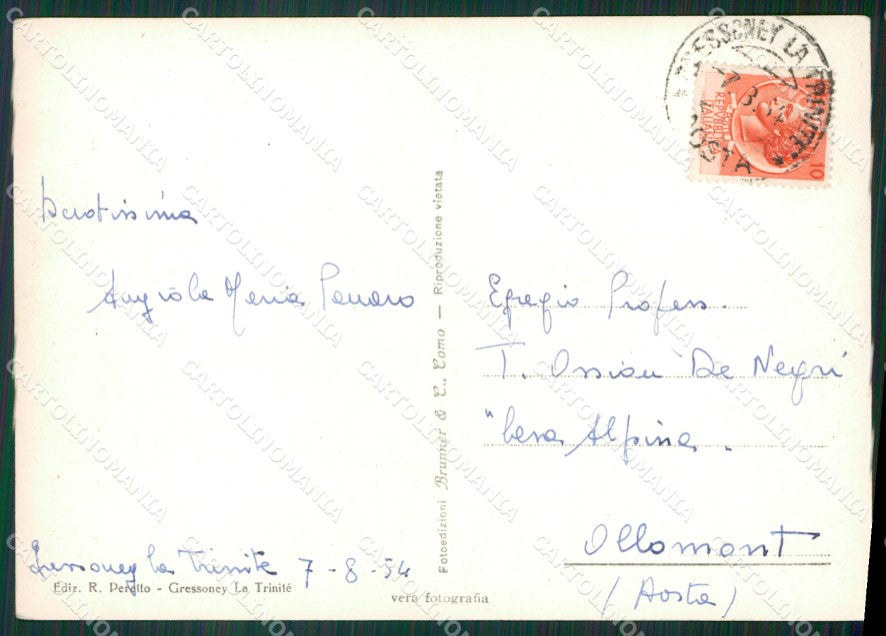 GRESSONEY LA TRINITE
7.8.54
AOSTA
REPVBBLICA
ITALIANA
10
Devotissima
Angiola Maria
Egregio Profess.
T. Ossian De Negri
"Casa Alpina.
Ollomont
(Aosta)
Gressoney la Trinité 7-8-54
Ediz. R. Peretto - Gressoney La Trinité
vera fotografia
Fotoedizioni Brunner & C., Como — Riproduzione vietata
CARTOLINOMANIA